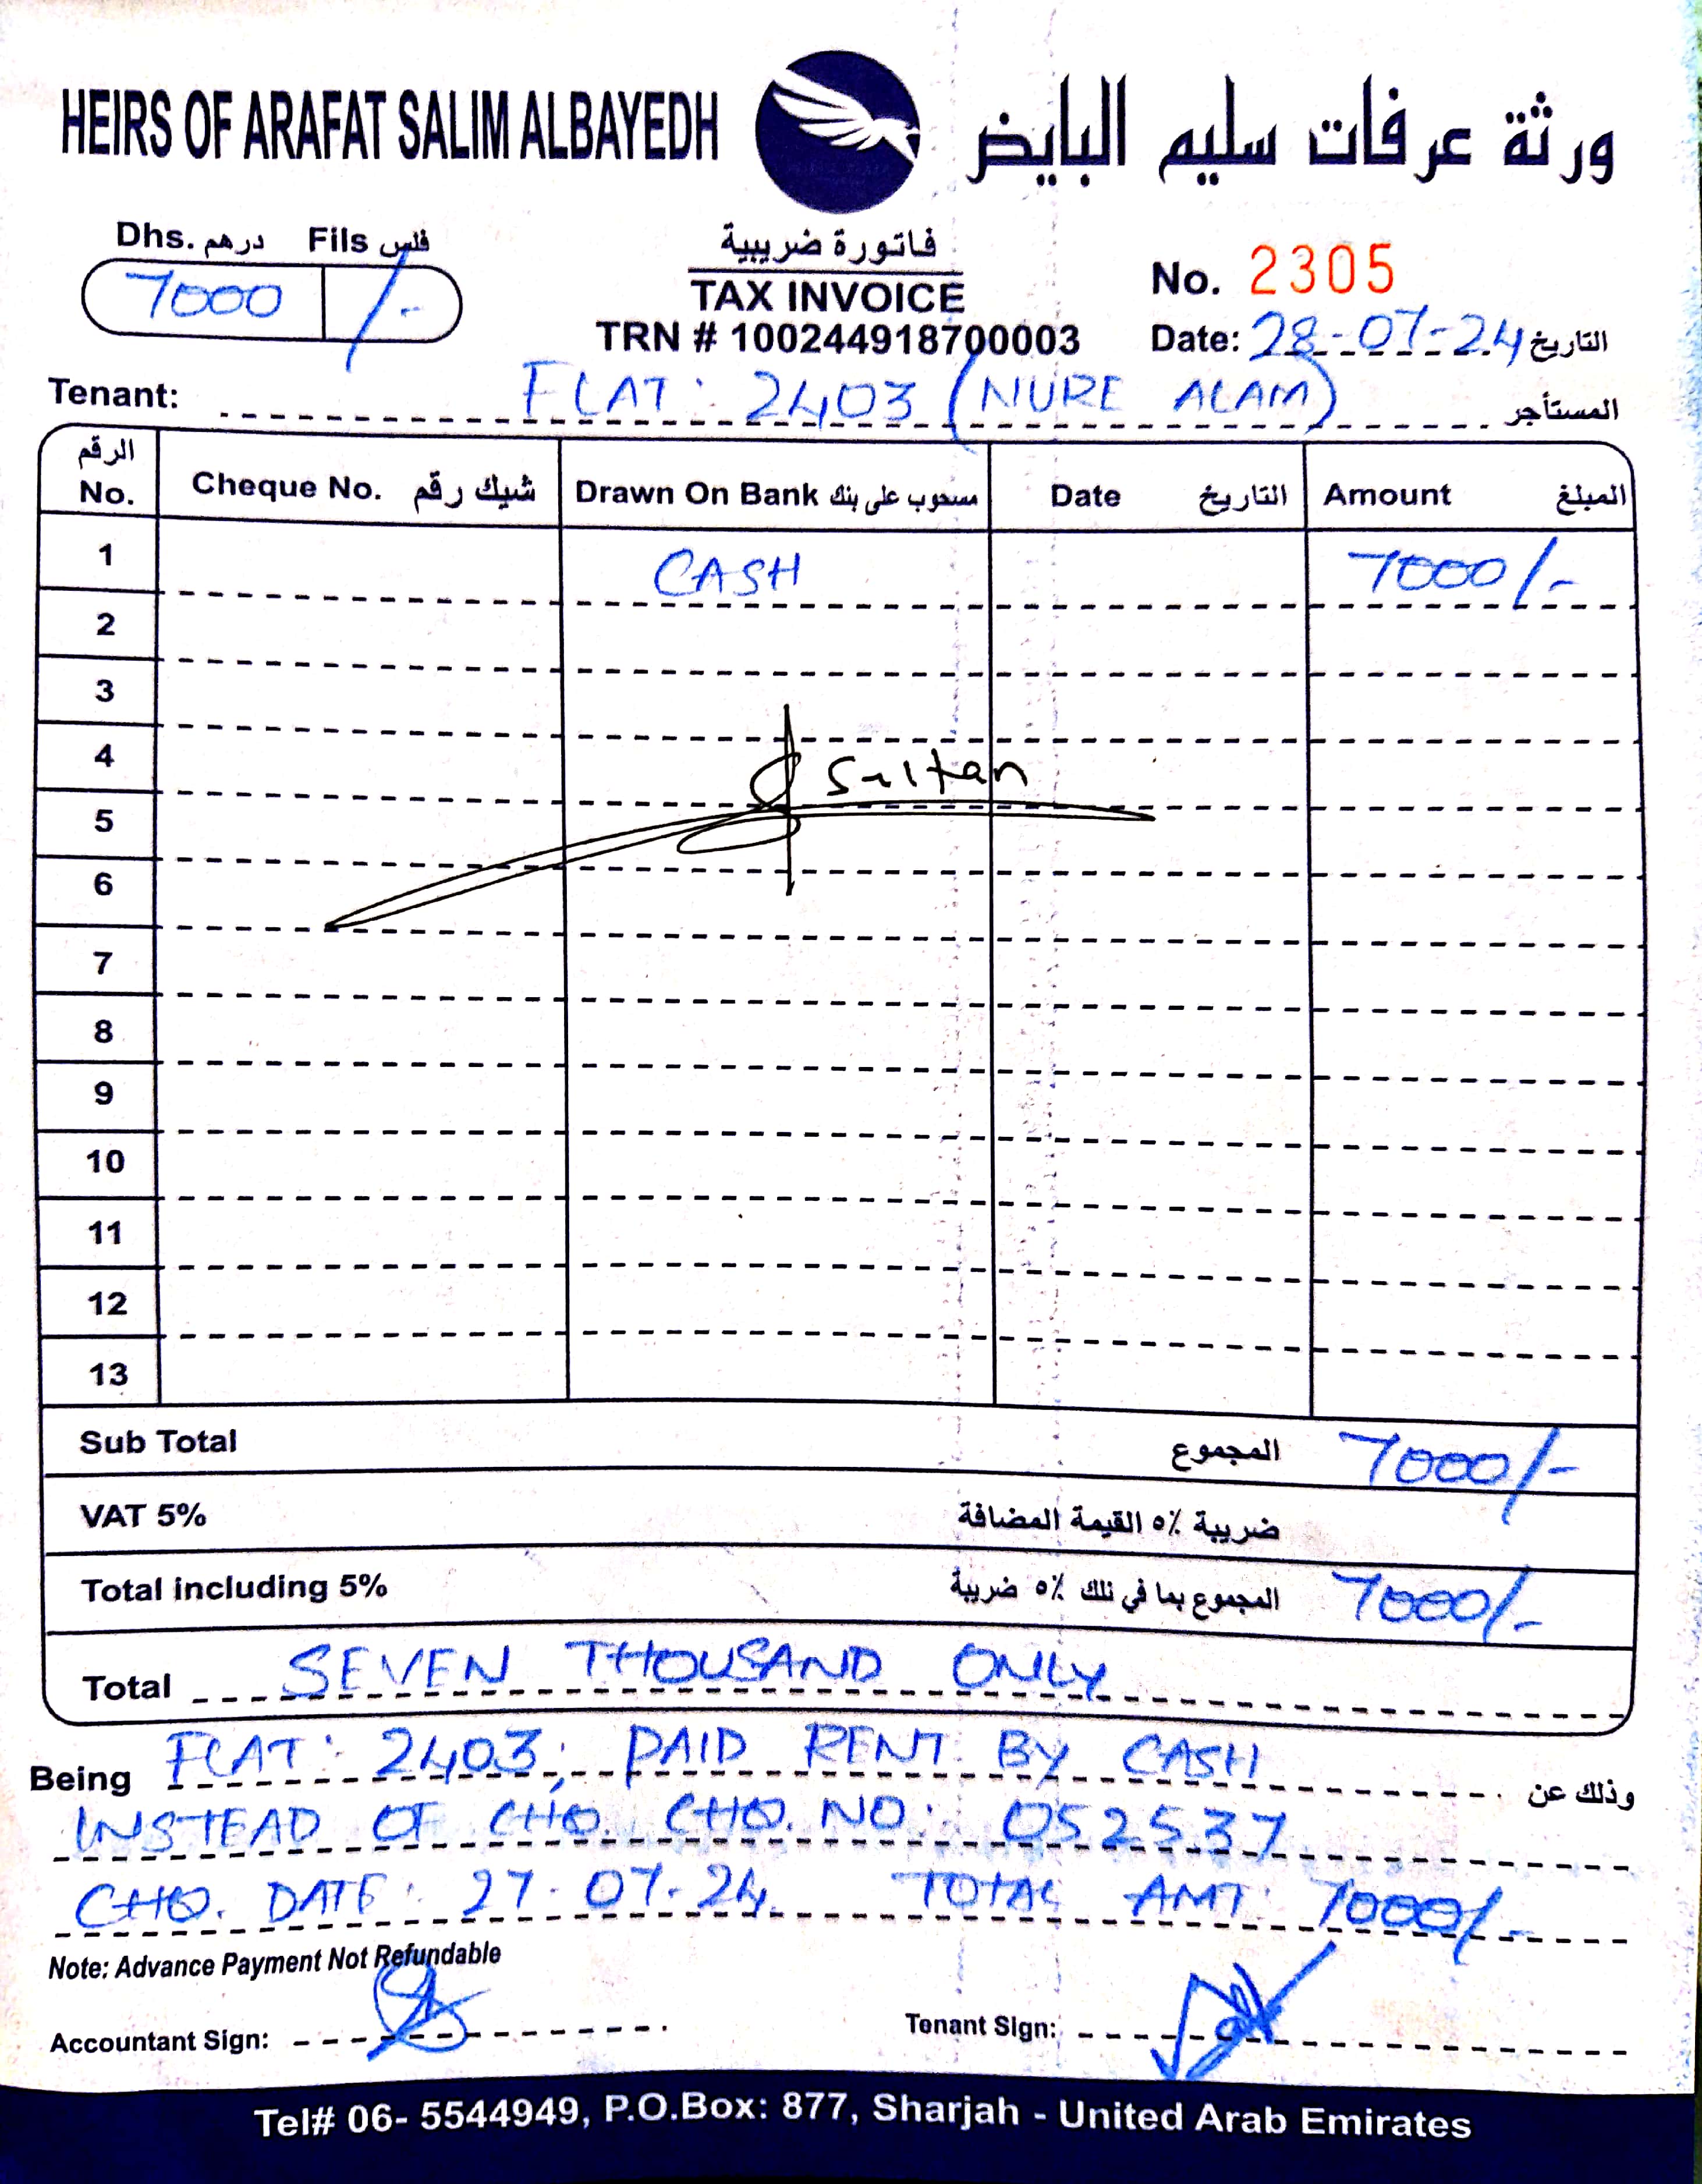 HEIRS OF ARAFAT SALIM ALBAYEDH ورثة عرفات سليم البايض
Dhs. درهم Fils فلس
7000 /-
فاتورة ضريبية
TAX INVOICE
TRN # 100244918700003
No. 2305
Date: 28-07-24 التاريخ
Tenant: FLAT: 2403 (NURE ALAM) المستأجر
الرقم No. Cheque No. شيك رقم Drawn On Bank مسحوب على بنك Date التاريخ Amount المبلغ
1 CASH 7000/-
2
3
4 Sultan
5
6
7
8
9
10
11
12
13
Sub Total المجموع 7000/-
VAT 5% ضريبة ٥٪ القيمة المضافة
Total including 5% المجموع بما في تلك ٥٪ ضريبة 7000/-
Total SEVEN THOUSAND ONLY
Being FLAT: 2403; PAID RENT BY CASH وذلك عن
INSTEAD OF CHQ. CHQ. NO: 052537
CHQ. DATE: 27-07-24. TOTAL AMT: 7000/-
Note: Advance Payment Not Refundable
Accountant Sign: Tenant Sign:
Tel# 06- 5544949, P.O.Box: 877, Sharjah - United Arab Emirates